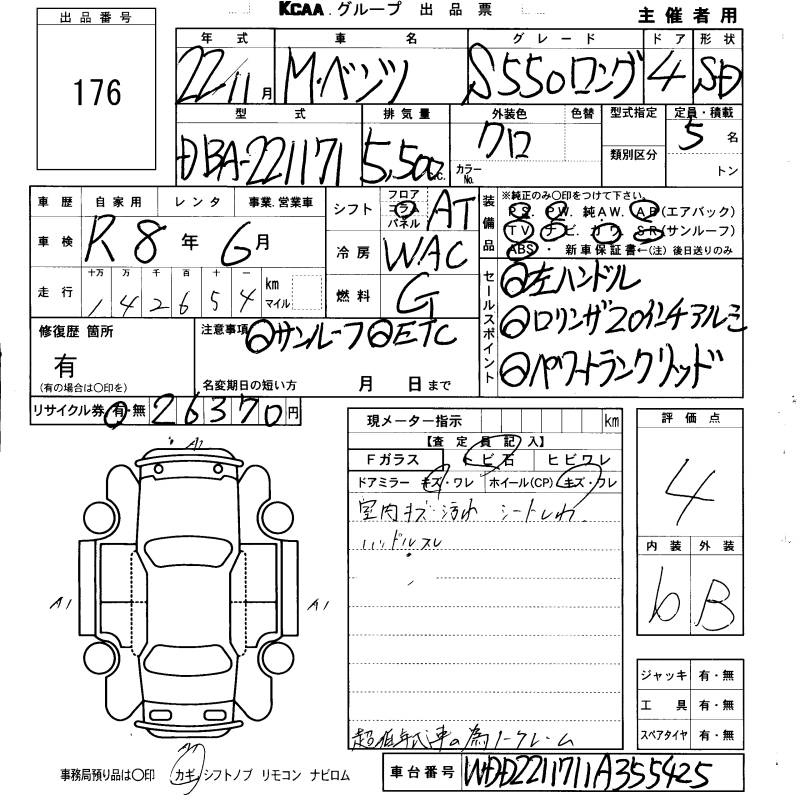 KCAA グループ 出品票
主催者用
出品番号
176
年式 車名 グレード ドア 形状
22/11月 M・ベンツ S550ロング 4 SD
型式 排気量 外装色 色替 型式指定 定員・積載
DBA-221171 5,500c.c. クロ 5名
カラーNo. 類別区分 トン
車歴 自家用 レンタ 事業.営業車
車検 R8年6月
十万 万 千 百 十 一
走行 142654 km マイル
シフト フロア コラム パネル AT
冷房 WAC
燃料 G
装備品
※純正のみ○印をつけて下さい。
PS. PW. 純AW. AB(エアバック)
TV ナビ. カワ. SR(サンルーフ)
ABS ・ 新車保証書←(注)後日送りのみ
セールスポイント
○左ハンドル
○ロリンザ20インチアルミ
○パワートランクリッド
修復歴 箇所
有
(有の場合は○印を)
注意事項 ○サンルーフ○ETC
名変期日の短い方 月 日まで
リサイクル券 有・無 26370円
現メーター指示 km
【査定員記入】
Fガラス トビ石 ヒビワレ
ドアミラー キズ・ワレ ホイール(CP) キズ・ワレ
室内キズ 汚れ シートしわ
ハンドルスレ
超低年式車の為ノークレーム
評価点
4
内装 外装
b B
A1
A1
A1
ジャッキ 有・無
工具 有・無
スペアタイヤ 有・無
事務局預り品は○印 カギ. シフトノブ リモコン ナビロム
車台番号 WDD2211711A355425